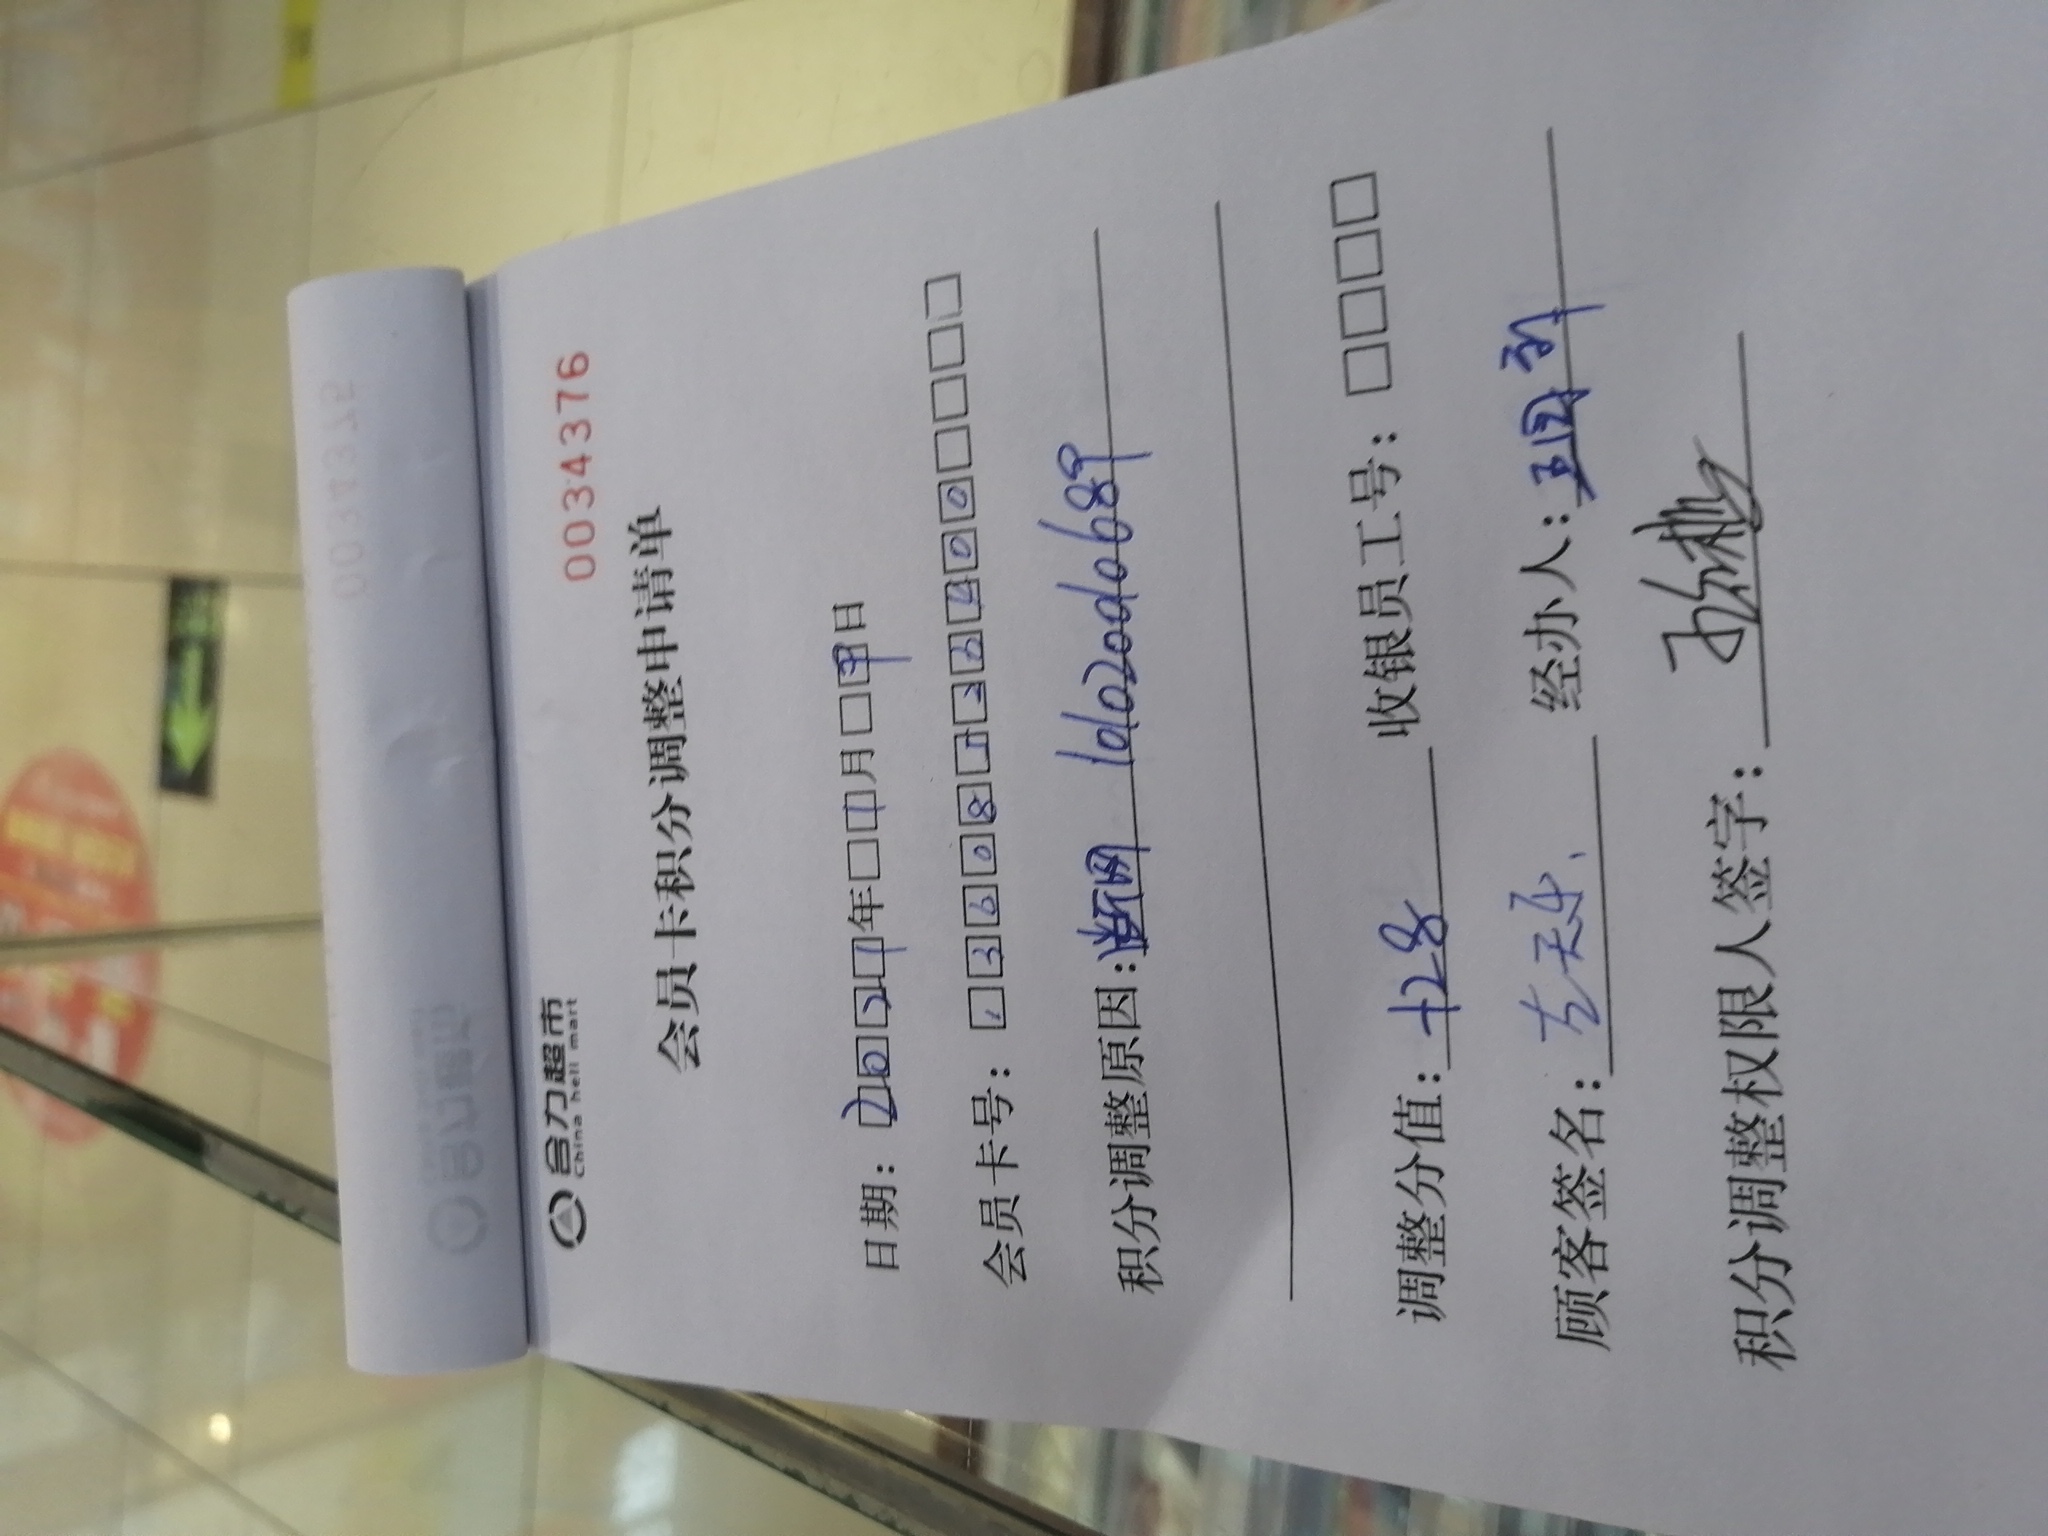 合力超市
China heli mart
0034376
会员卡积分调整申请单
日期：2021年1月9日
会员卡号：13608123400
积分调整原因：断网 1010200d0689
调整分值：+28 收银员工号：
顾客签名： 经办人：
积分调整权限人签字：